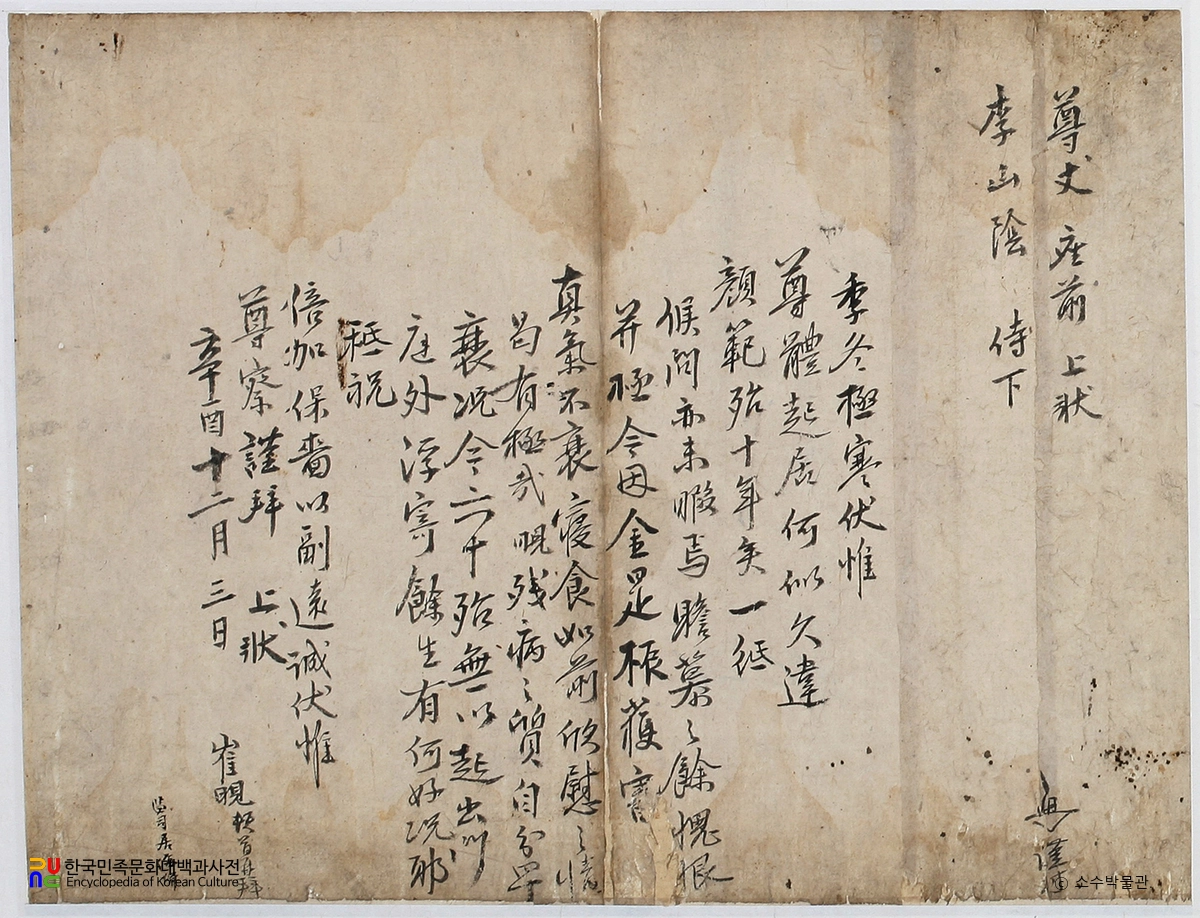 尊丈 座前 上狀
李山陰 侍下
季冬極寒伏惟
尊體起居何似久違
顔範殆十年矣一紙
候問亦未暇焉瞻慕之餘愧恨
并極今因金是振獲審
真氣不衰寢食如前欣慰之情
曷有極哉晛殘病之質自分早
衰況今六十殆無以起出門
庭外浮寄餘生有何好況耶
秪祝
倍加保嗇以副遠誠伏惟
尊察 謹拜 上狀
辛酉十二月三日
崔晛 頓首再拜
한국민족문화대백과사전
Encyclopedia of Korean Culture
© 소수박물관